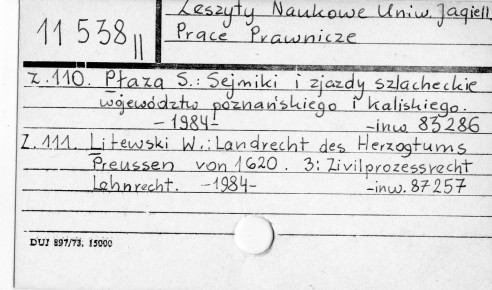 Zeszyty Naukowe Uniw. Jagiell.
11 538 II
Prace Prawnicze
Z. 110. Płaza S.: Sejmiki i zjazdy szlacheckie
województw poznańskiego i kaliskiego.
- 1984 - - inw. 83 286
Z. 111. Litewski W.: Landrecht des Herzogtums
Preussen von 1620. 3: Zivilprozessrecht
Lehnrecht. - 1984 - - inw. 87 257
DUJ 897/73. 15000